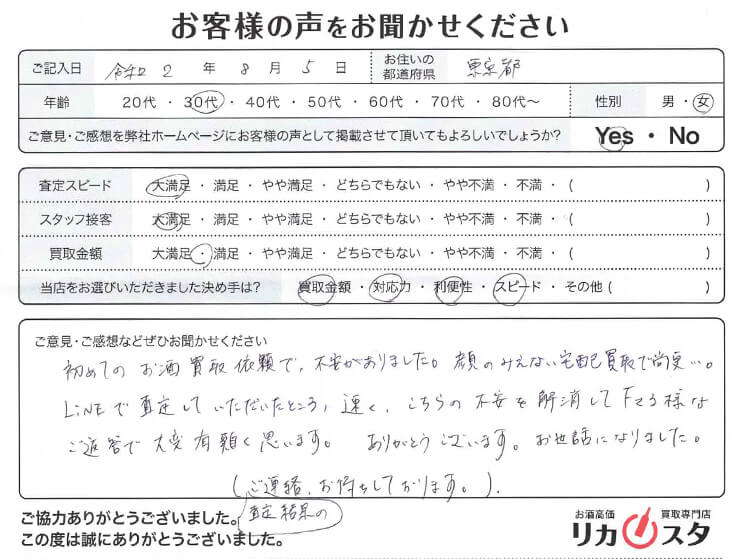 お客様の声をお聞かせください
ご記入日 令和2年8月5日 お住いの都道府県 東京都
年齢 20代・30代・40代・50代・60代・70代・80代～ 性別 男・女
ご意見・ご感想を弊社ホームページにお客様の声として掲載させて頂いてもよろしいでしょうか？ Yes・No
査定スピード 大満足・満足・やや満足・どちらでもない・やや不満・不満・( )
スタッフ接客 大満足・満足・やや満足・どちらでもない・やや不満・不満・( )
買取金額 大満足・満足・やや満足・どちらでもない・やや不満・不満・( )
当店をお選びいただきました決め手は？ 買取金額・対応力・利便性・スピード・その他( )
ご意見・ご感想などぜひお聞かせください
初めてのお酒買取依頼で、不安がありました。顔のみえない宅配買取で尚更…。
LiNEで査定していただいたところ、速く、こちらの不安を解消して下さる様な
ご返答で大変有難く思います。 ありがとうございます。お世話になりました。
(ご連絡、お待ちしております。).
査定結果の
ご協力ありがとうございました。
この度は誠にありがとうございました。
お酒高価 買取専門店
リカスタ